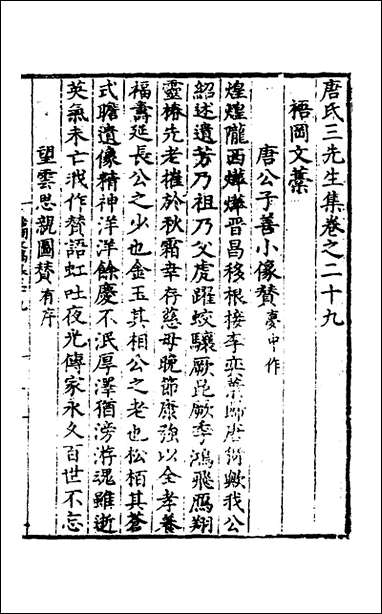 唐氏三先生集卷之二十九
梧岡文藁
唐公子善小像贊夢中作
煌煌隴西燁燁晉昌移根接李奕葉師唐猗歟我公
紹述遺芳乃祖乃父虎躍蛟驤厥昆厥季鴻飛鴈翔
靈椿先老摧於秋霜幸存慈母晚節康強以全孝養
福壽延長公之少也金玉其相公之老也松栢其蒼
式瞻遺像精神洋洋餘慶不泯厚澤猶滂游魂雖逝
英氣未亡我作贊語虹吐夜光傳家永久百世不忘
望雲思親圖贊有序